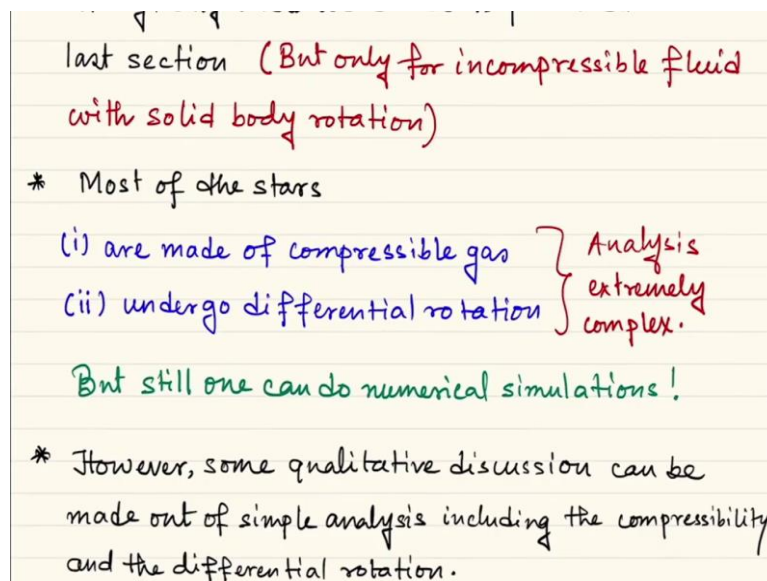 last section (But only for incompressible fluid
with solid body rotation)
* Most of the stars
(i) are made of compressible gas
(ii) undergo differential rotation
Analysis
extremely
complex.
But still one can do numerical simulations!
* However, some qualitative discussion can be
made out of simple analysis including the compressibility
and the differential rotation.